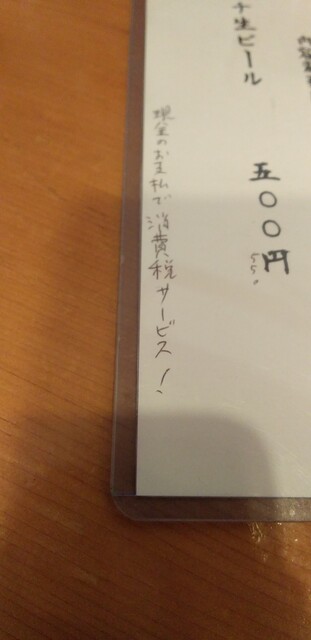 チ生ビール
五〇〇円
550
現金のお支払で消費税サービス!